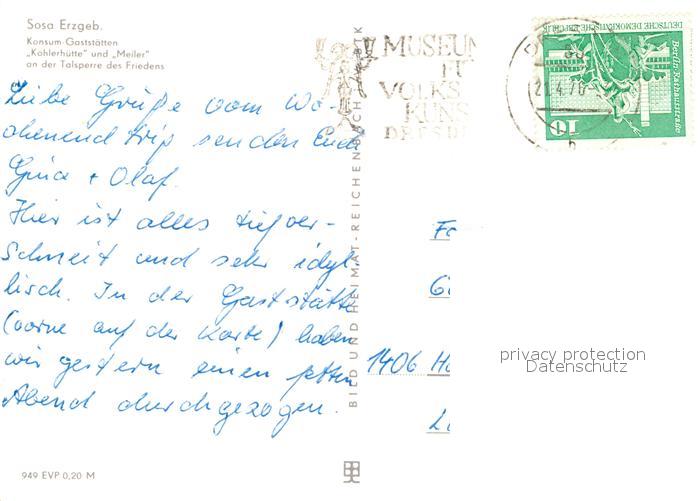 Sosa Erzgeb.
Konsum-Gaststätten
„Köhlerhütte" und „Meiler"
an der Talsperre des Friedens
Liebe Grüße vom Wo-
chenend trip senden Euch
Gina + Olaf.
Hier ist alles tiefver-
schneit und sehr idyl-
lisch. In der Gaststätte
(vorne auf der Karte) haben
wir gestern einen fetten
Abend durchgezogen.
949 EVP 0,20 M
BILD UND HEIMAT · REICHENBACH
MUSEUM
FÜ
VOLKS
KUNS
DRESD
21.4.76
DEUTSCHE DEMOKRATISCHE REPUBLIK
Berlin, Rathausstraße
10
1406
privacy protection
Datenschutz